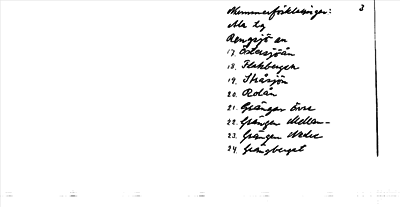 Nummerförklaringer: 3
Ala sg
Rengsjö sn
17. Östersjöån
18. Flakbergen
19. Stråsjön
20. Rolån
21. Grången Övre
22. Grången Mellan-
23. Grången Nedre
24. Grångberget